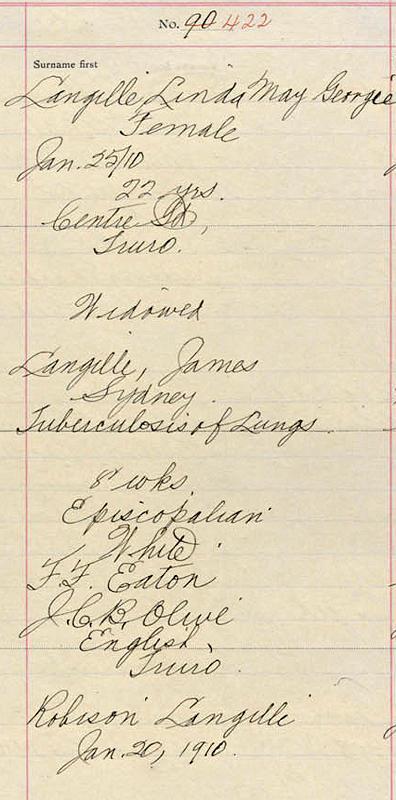 No. 90 422
Surname first
Langille, Linda May Georgie
Female
Jan. 25/10
22 yrs.
Centre Rd,
Truro.
Widowed
Langille, James
Sydney.
Tuberculosis of Lungs.
8 wks
Episcopalian
White
F. F. Eaton
J. C. B. Olive
English
Truro.
Robison Langille
Jan. 20, 1910.